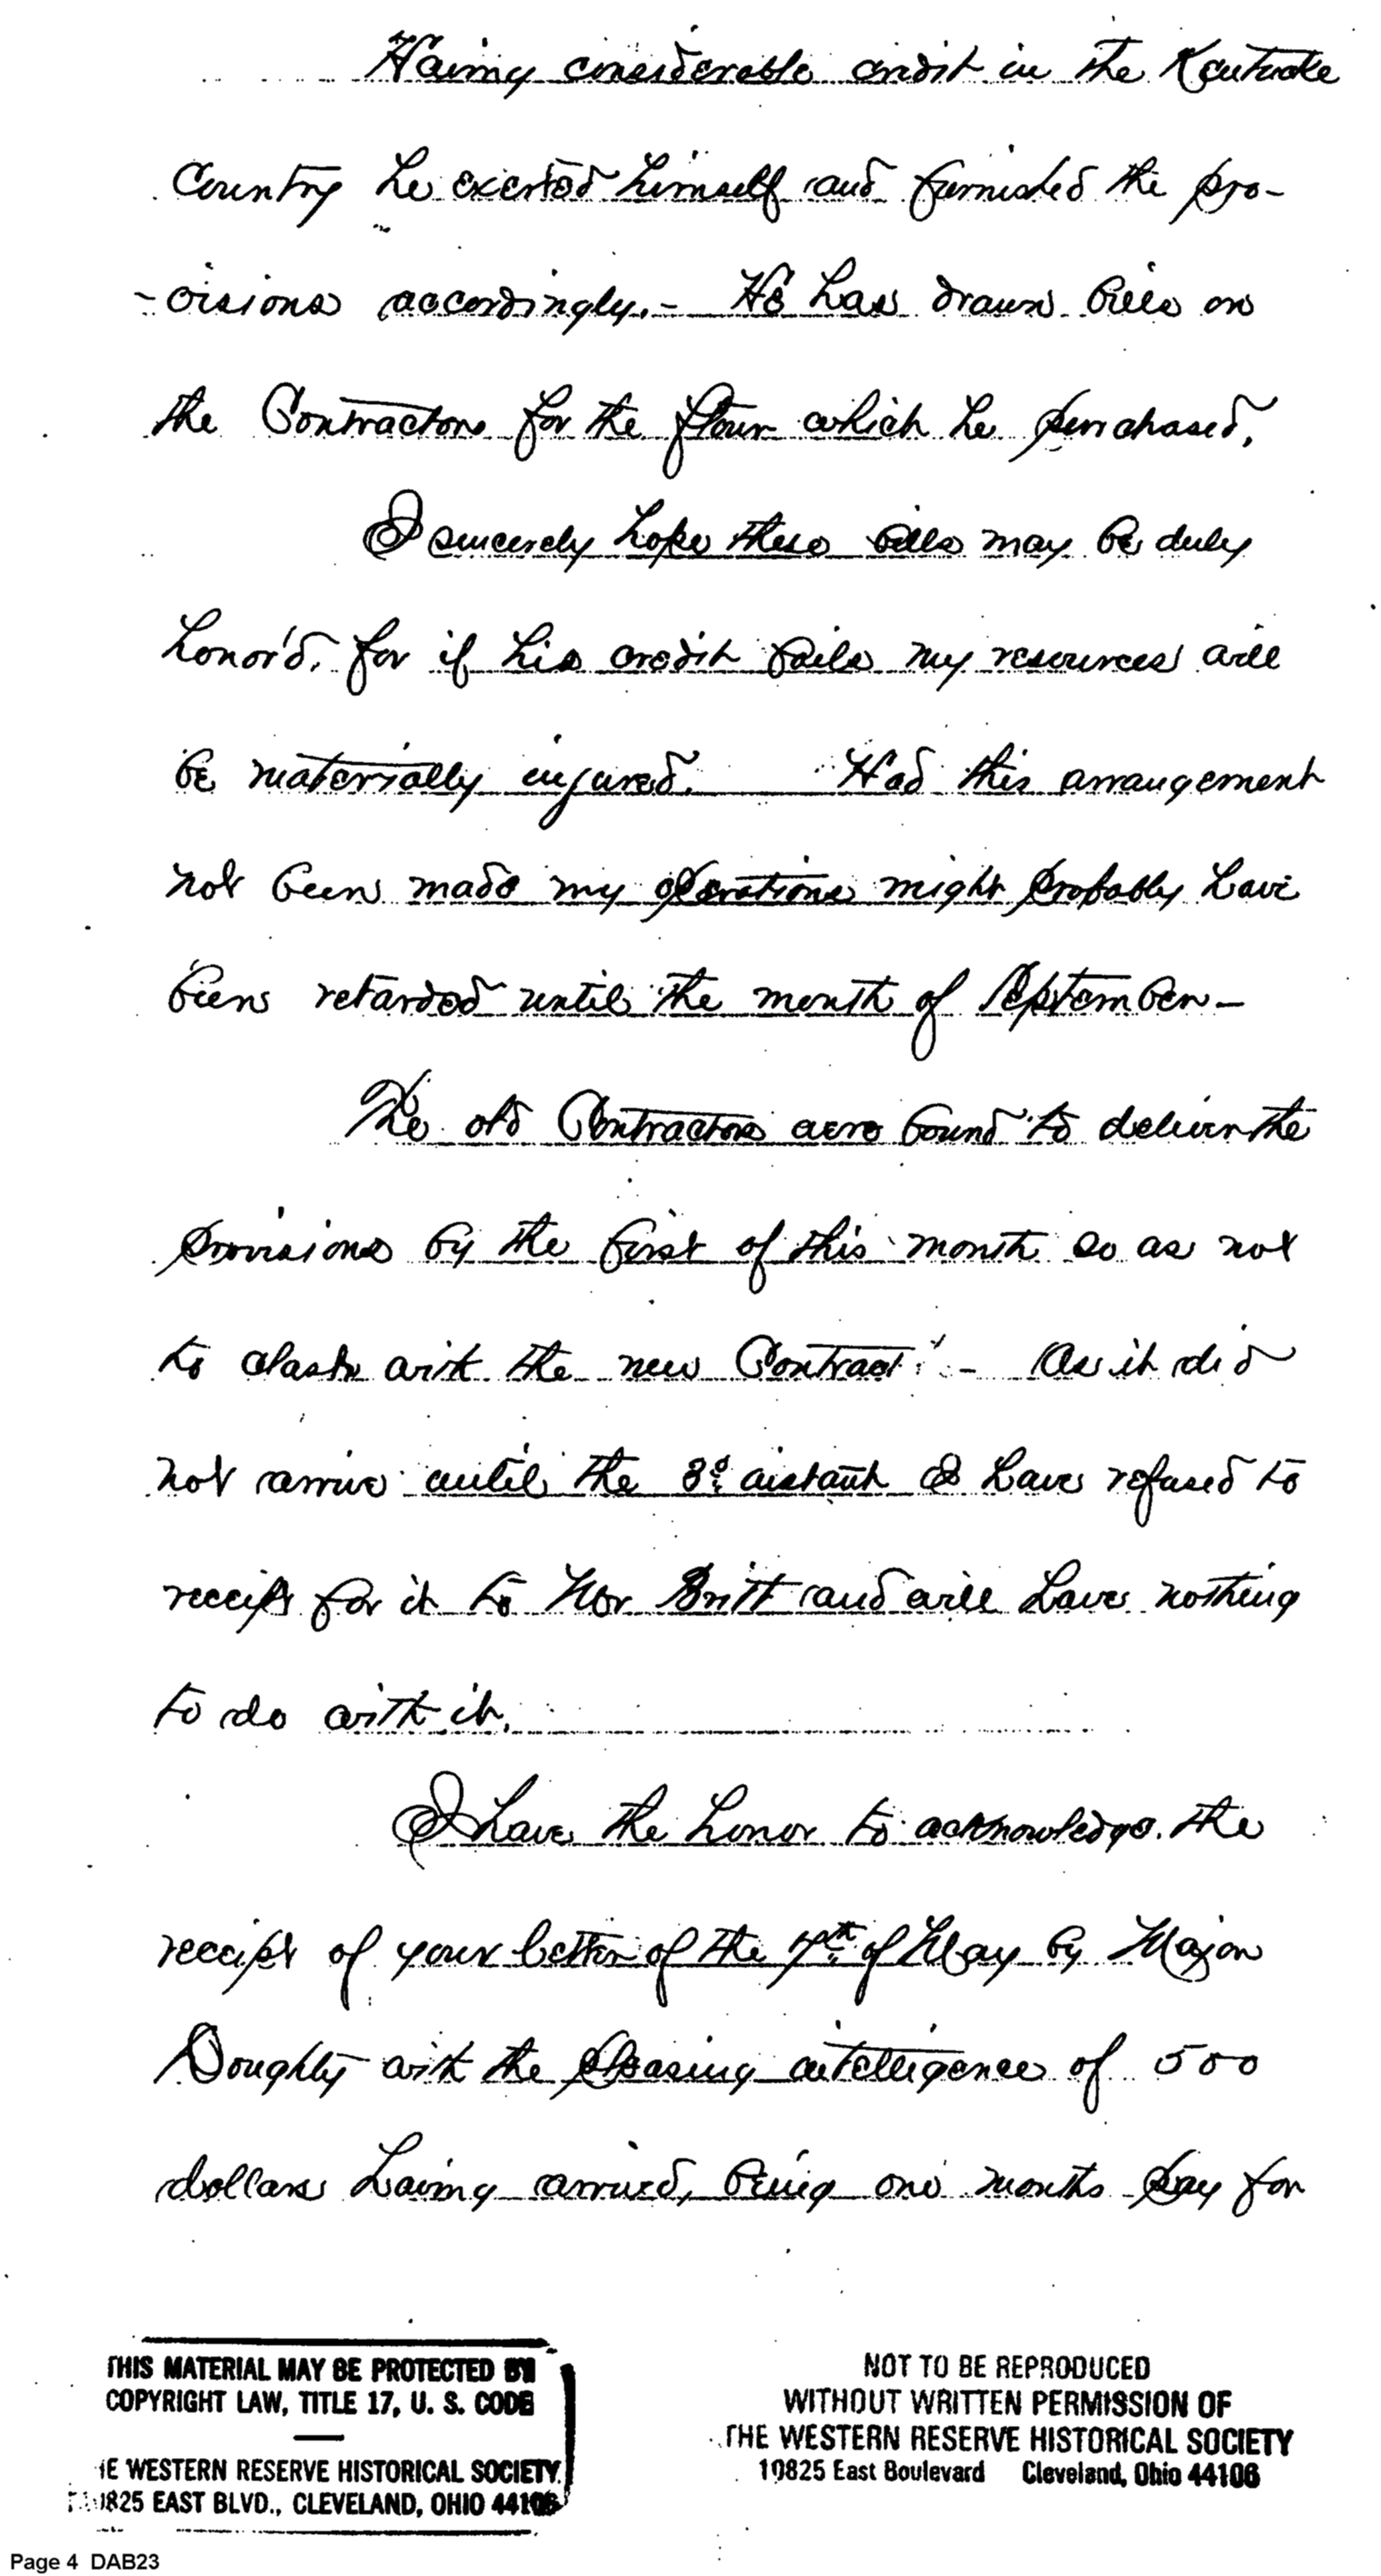 Having considerable credit in the Kentucke
Country he exerted himself and furnished the pro-
-visions accordingly.- He has drawn bills on
the Contractors for the flour which he purchased.
I sincerely hope these bills may be duly
honor'd, for if his credit fails my resources will
be materially injured. Had this arrangement
not been made my operations might probably have
been retarded until the month of September-
The old Contractors were bound to deliver the
provisions by the first of this month so as not
to clash with the new Contract - As it did
not arrive until the 3d instant I have refused to
receipt for it to Mr Britt and will have nothing
to do with it.
I have the honor to acknowledge the
receipt of your letter of the 7th of May by Major
Doughty with the pleasing intelligence of 500
dollars having arrived, being one months pay for
THIS MATERIAL MAY BE PROTECTED BY
COPYRIGHT LAW, TITLE 17, U. S. CODE
HE WESTERN RESERVE HISTORICAL SOCIETY
10825 EAST BLVD., CLEVELAND, OHIO 44106
NOT TO BE REPRODUCED
WITHOUT WRITTEN PERMISSION OF
THE WESTERN RESERVE HISTORICAL SOCIETY
10825 East Boulevard Cleveland, Ohio 44106
Page 4 DAB23